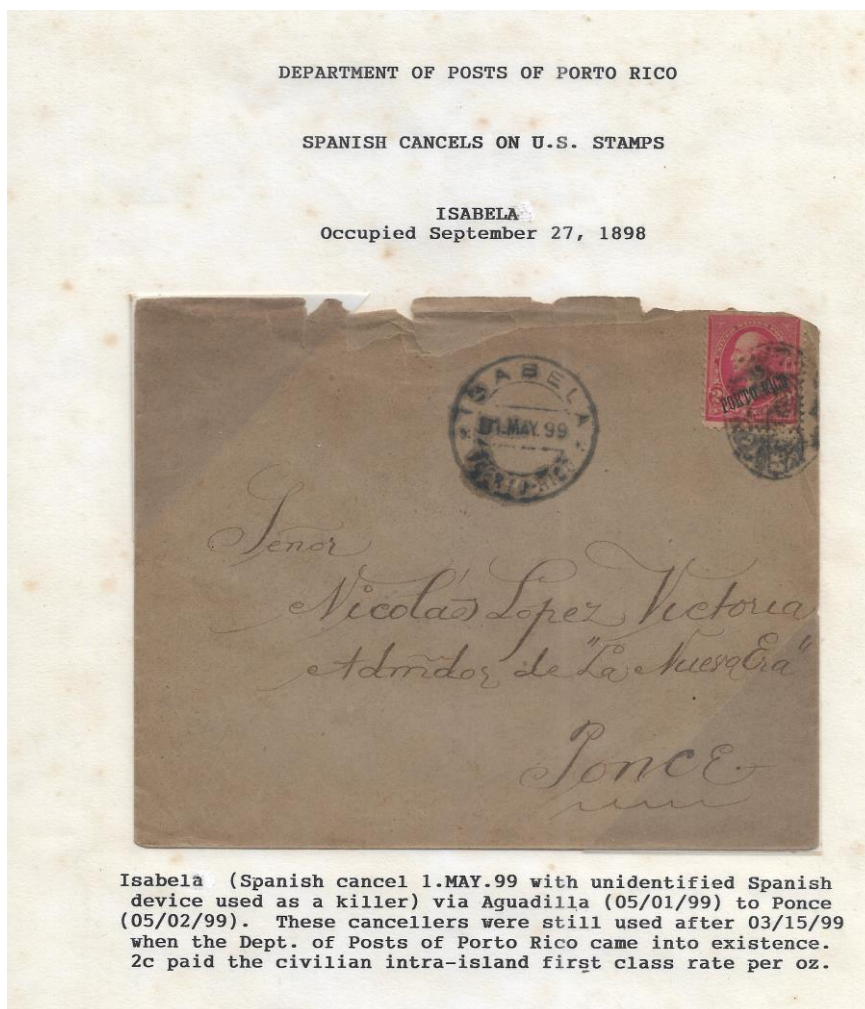 DEPARTMENT OF POSTS OF PORTO RICO
SPANISH CANCELS ON U.S. STAMPS
ISABELA
Occupied September 27, 1898
PORTO RICO
ISABELA
1.MAY.99
PORTO-RICO
Señor
Nicolás López Victoria
Admdor de "La Nueva Era"
Ponce
Isabela (Spanish cancel 1.MAY.99 with unidentified Spanish
device used as a killer) via Aguadilla (05/01/99) to Ponce
(05/02/99). These cancellers were still used after 03/15/99
when the Dept. of Posts of Porto Rico came into existence.
2c paid the civilian intra-island first class rate per oz.